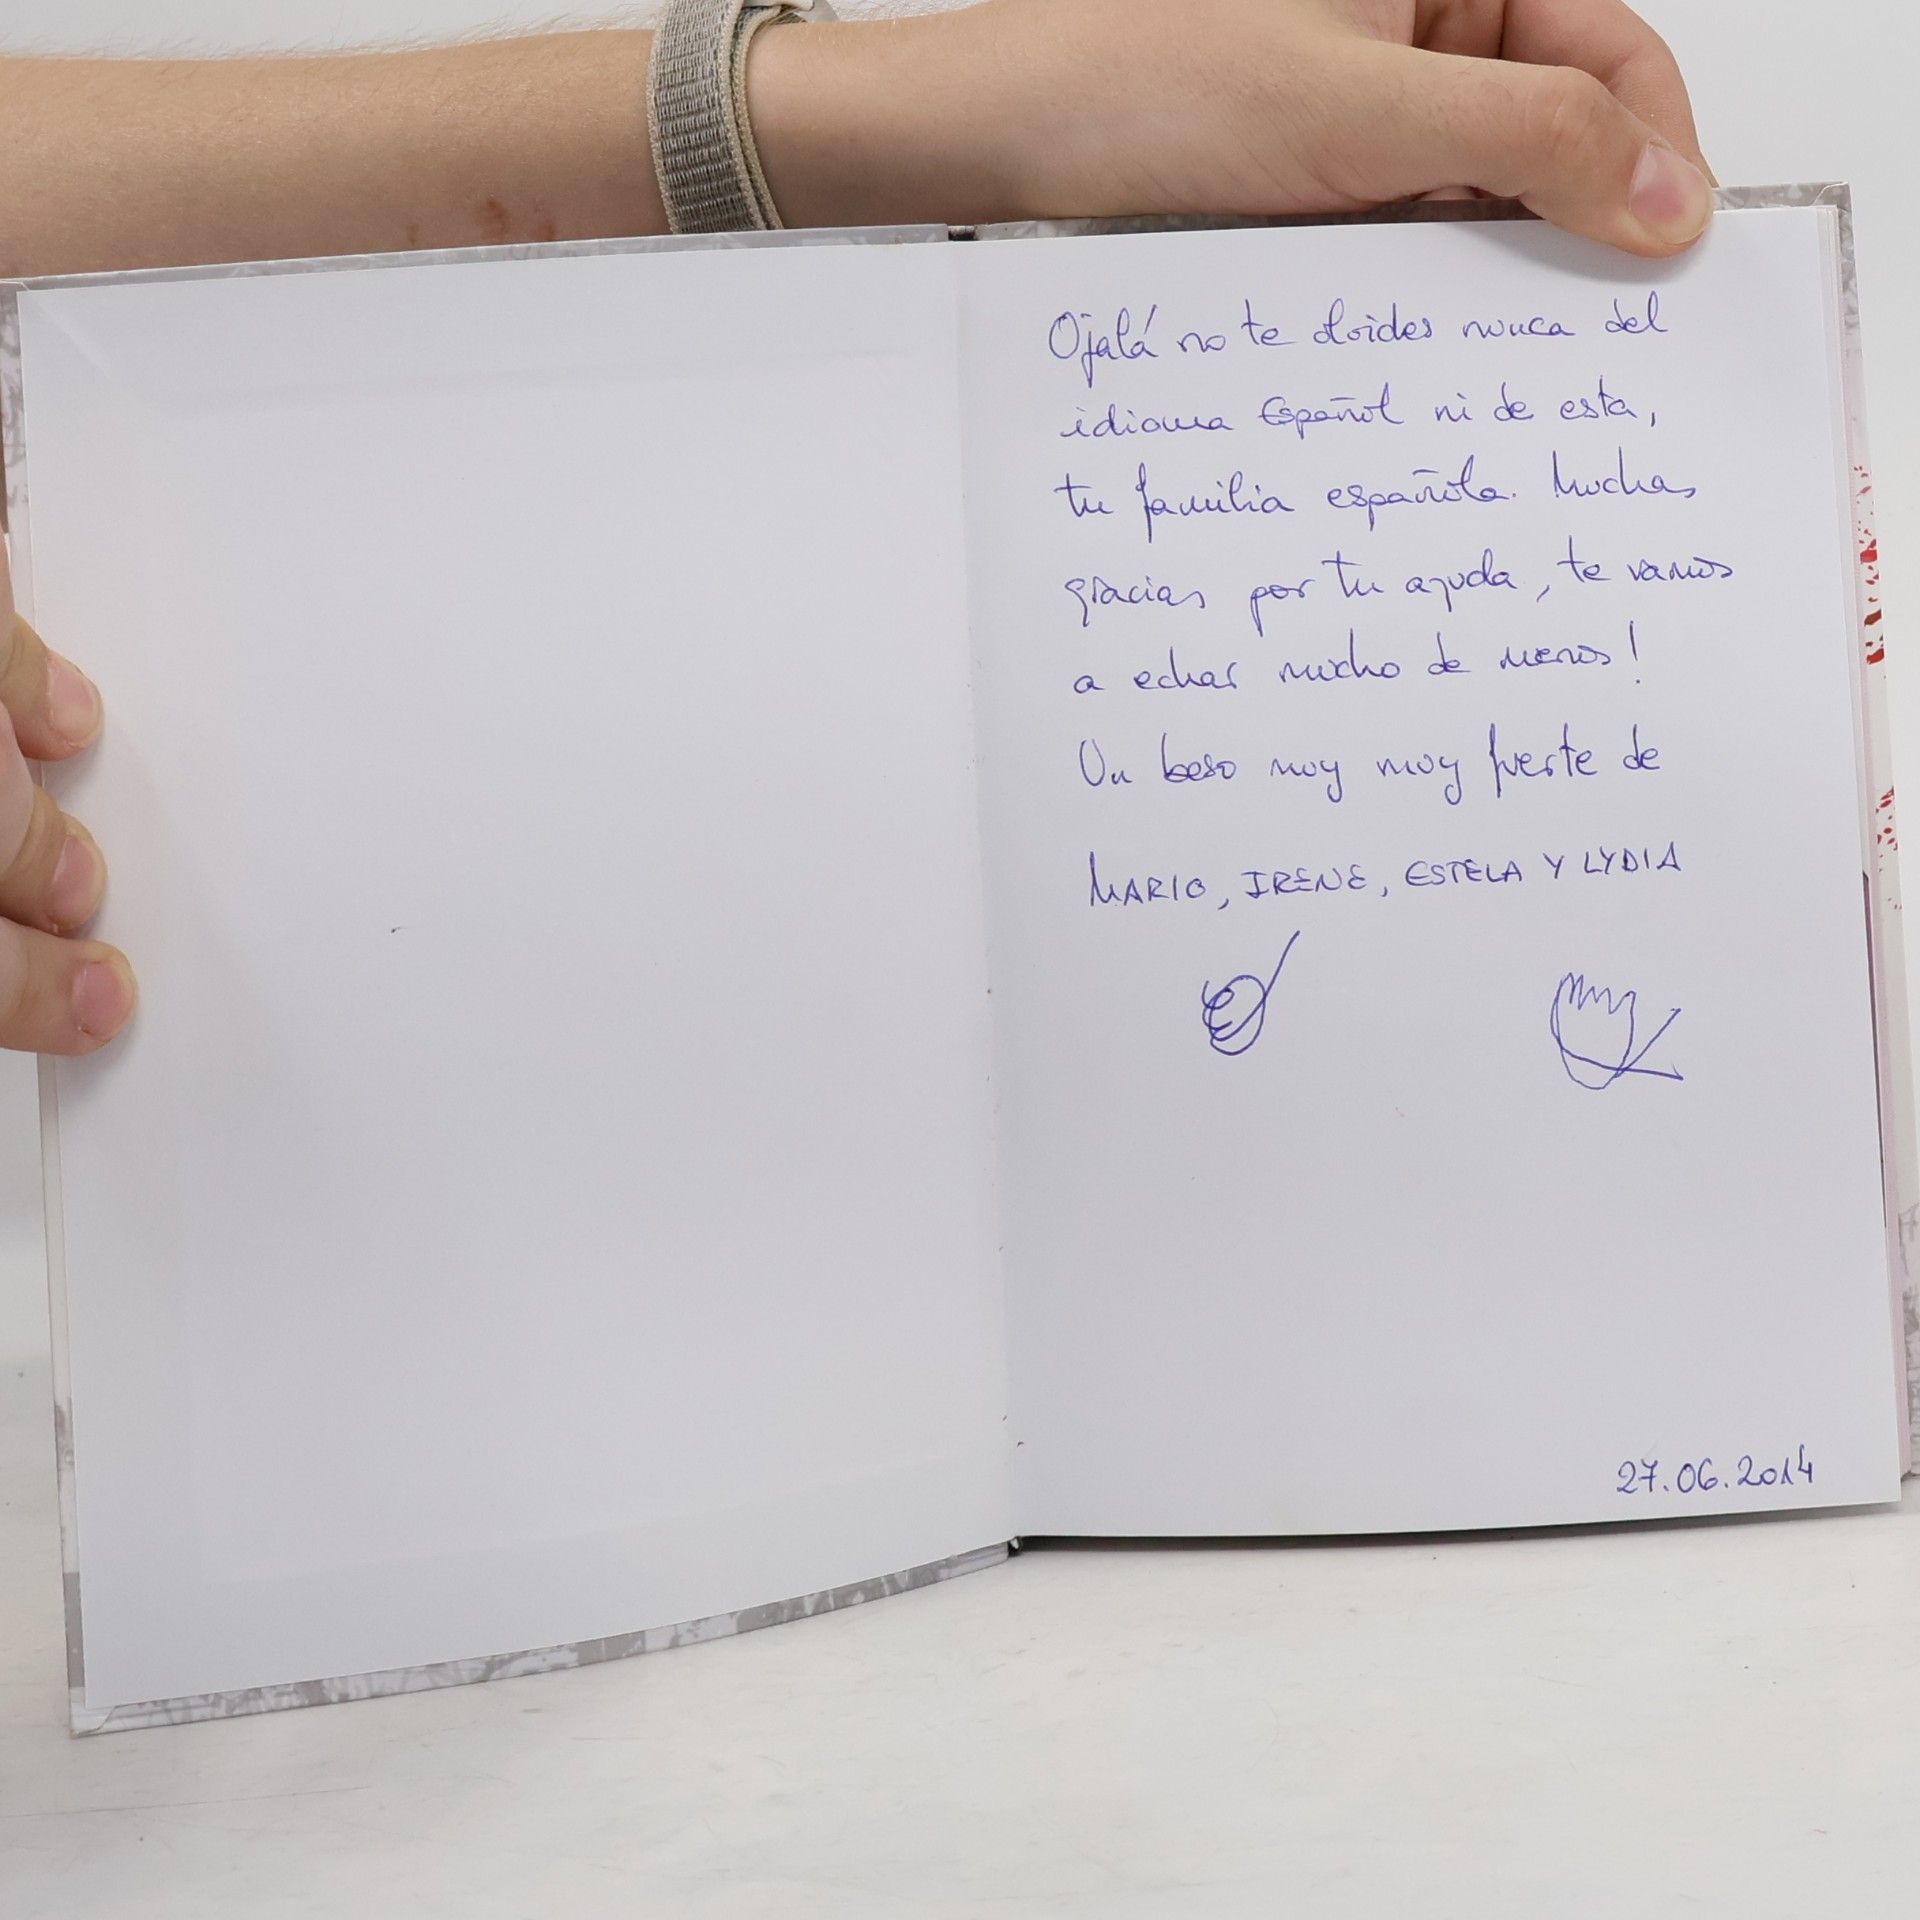 Ojalá no te olvides nunca del
idioma Español ni de esta,
tu familia española. Muchas
gracias por tu ayuda, te vamos
a echar mucho de menos!
Un beso muy muy fuerte de
MARIO, IRENE, ESTELA Y LYDIA
27.06.2014